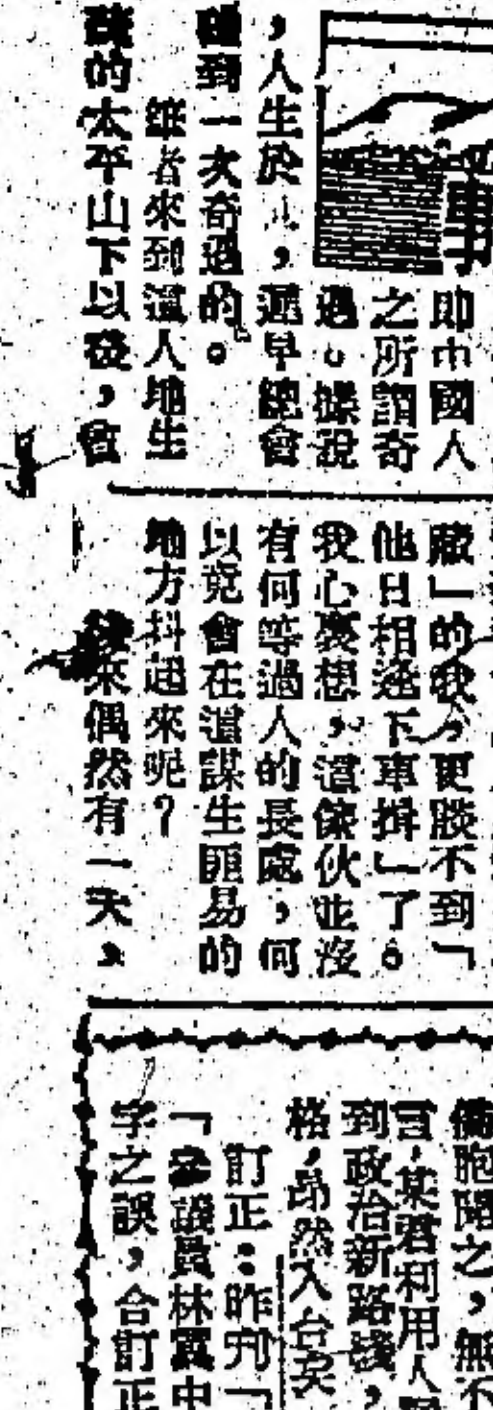 事
即中國人
之所謂奇
遇。據說
，人生於世，遲早總會
碰到一次奇遇的。
維者來到這人地生
疏的太平山下以後，會
藏」的我，更談不到「
他日相逢下車揖」了。
我心裏想，這傢伙並沒
有何等過人的長處，何
以竟會在這謀生匪易的
地方抖起來呢？
後來偶然有一天，
僑胞聞之，無不
言，某君利用人
到政治新路綫，
格，昂然入台矣
訂正：昨刋「
「議員林」中
字之誤，合訂正